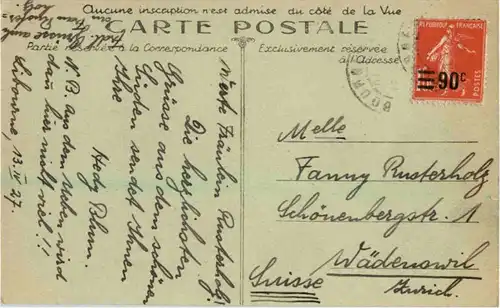 Aucune inscription n'est admise du côté de la Vue
CARTE POSTALE
Partie réservée à la Correspondance
Exclusivement réservée
à l'Adresse
RÉPUBLIQUE FRANÇAISE
90c
POSTES
BOURG
Melle
Fanny Rusterholz
Schönenbergstr. 1
Wädenswil
Suisse
Zürich.
Werte Fräulein Rusterholz!
Die herzlichsten
Grüsse aus dem schönen
Süden sendet Ihnen
Ihre
Hedy Blum.
N.B. Aus dem Ueben wird
dann hier nicht viel!!
Libourne, 13. IV. 27.
Grüsse auch
an Frau Rusterholz